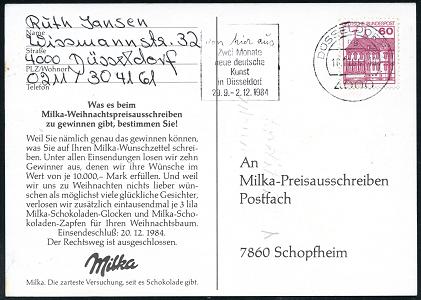 Ruth Jansen
Name
Wissmannstr. 32
Straße
4000 Düsseldorf
PLZ/Wohnort
0211/304161
Telefon
Was es beim
Milka-Weihnachtspreisausschreiben
zu gewinnen gibt, bestimmen Sie!
Weil Sie nämlich genau das gewinnen können,
was Sie auf Ihren Milka-Wunschzettel schrei-
ben. Unter allen Einsendungen losen wir zehn
Gewinner aus, denen wir ihre Wünsche im
Wert von je 10.000,- Mark erfüllen. Und weil
wir uns zu Weihnachten nichts lieber wün-
schen als möglichst viele glückliche Gesichter,
verlosen wir zusätzlich eintausendmal je 3 lila
Milka-Schokoladen-Glocken und Milka-Scho-
koladen-Zapfen für Ihren Weihnachtsbaum.
Einsendeschluß: 20. 12. 1984.
Der Rechtsweg ist ausgeschlossen.
Milka
Milka. Die zarteste Versuchung, seit es Schokolade gibt.
von hier aus
Zwei Monate
neue deutsche
Kunst
in Düsseldorf
29.9.-2.12.1984
DÜSSELDORF
4000
DEUTSCHE BUNDESPOST
60
An
Milka-Preisausschreiben
Postfach
7860 Schopfheim